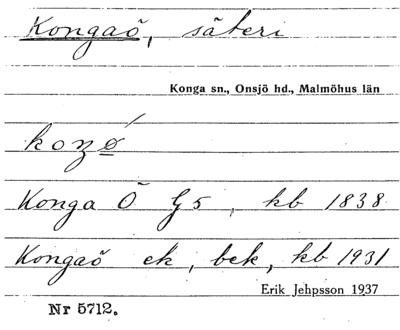 Kongaö, säteri
Konga sn., Onsjö hd., Malmöhus län
koŋø´
Konga Ö G5, kb 1838
Kongaö ek, bek, kb 1931
Erik Jehpsson 1937
Nr 5712.